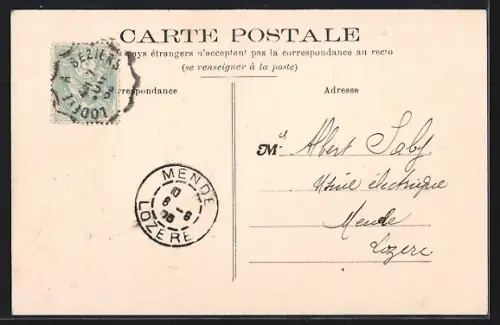 CARTE POSTALE
pays étrangers n'acceptent pas la correspondance au recto
(se renseigner à la poste)
rrespondance
Adresse
LODÈVE A BÉZIERS
Mr Albert Saby
Usine électrique
Mende
Lozere
MENDE
6 - 6
LOZERE